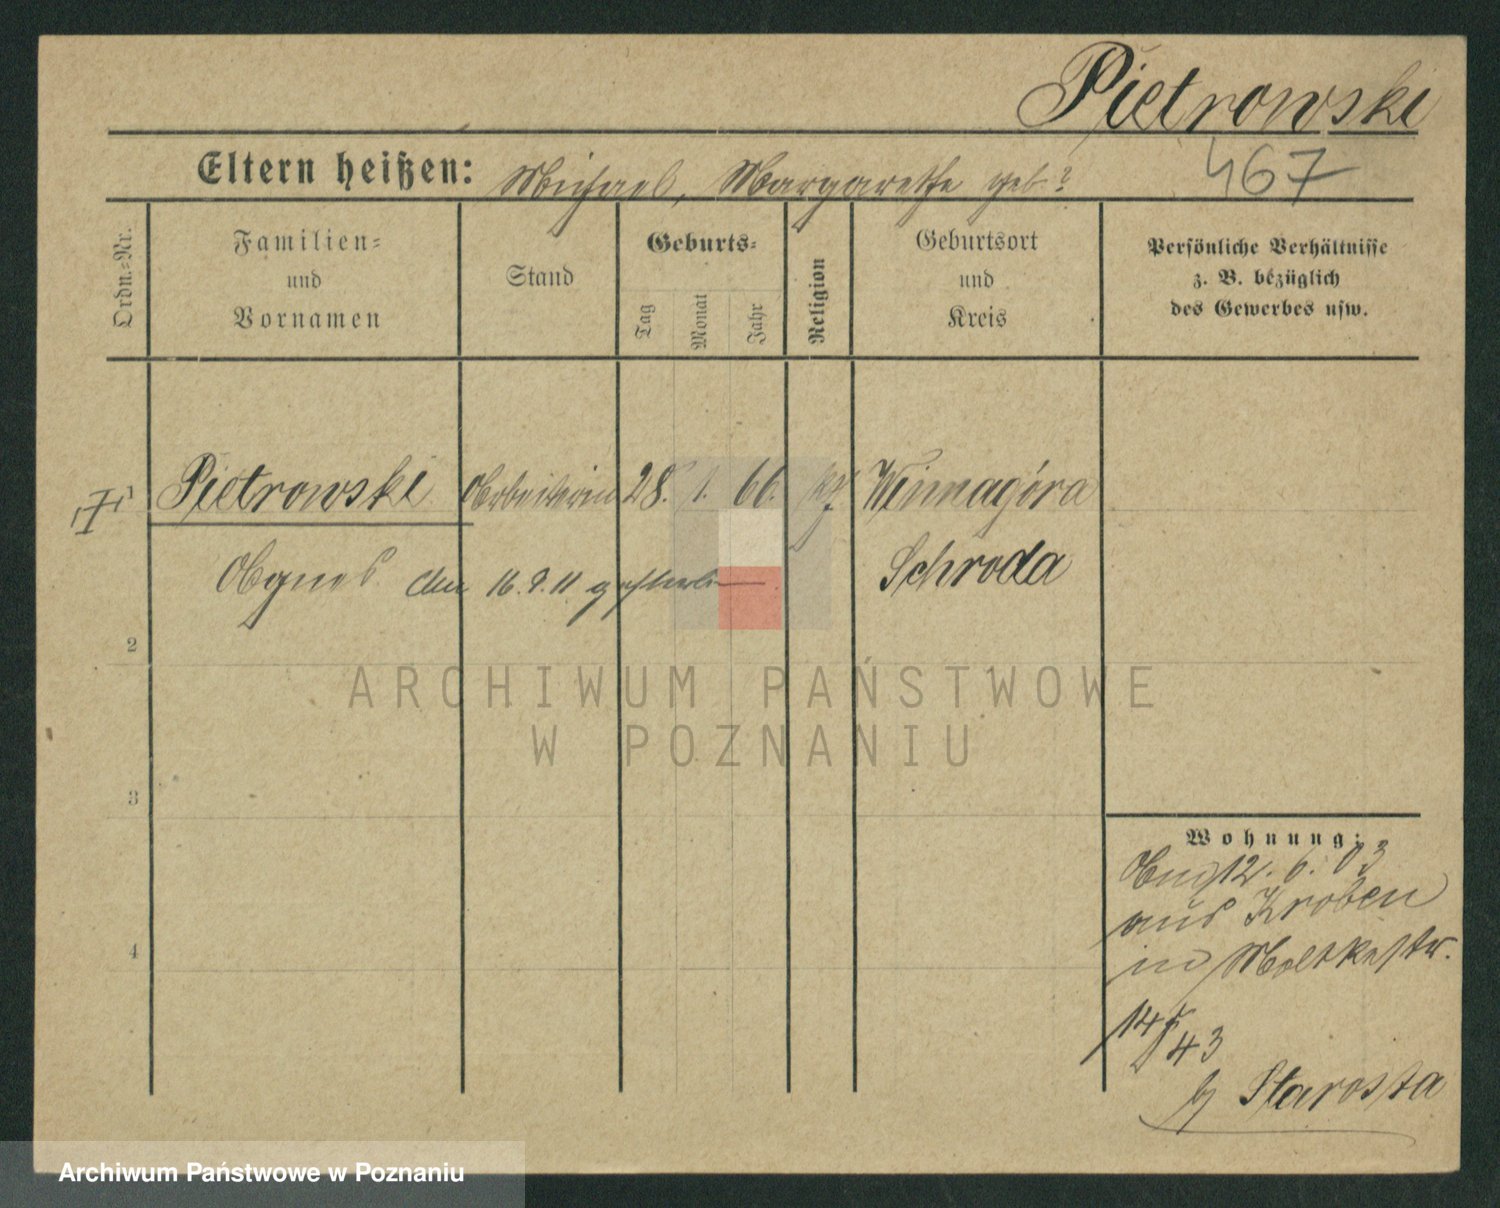 Pietrowski
467
Eltern heißen: Michael, Margarethe geb ?
Ordn.-Nr.
Familien-
und
Vornamen
Stand
Geburts-
Tag
Monat
Jahr
Religion
Geburtsort
und
Kreis
Persönliche Verhältnisse
z. B. bezüglich
des Gewerbes usw.
Pietrowski Arbeiterin 28. 1. 66. Winnagóra
Agnes den 16.9.11 gestorben Schroda
2
3
4
Wohnung:
12. 6. 03
aus Kroben
in Moltkestr.
14
43
b/ Starosta
ARCHIWUM PAŃSTWOWE
W POZNANIU
Archiwum Państwowe w Poznaniu